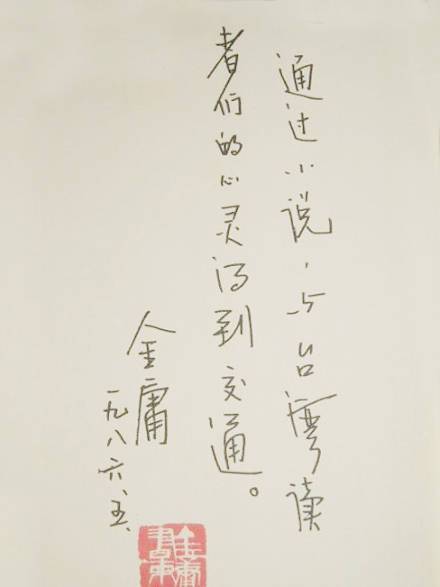 通过小说，与台湾读
者们的心灵得到交通。
金庸
一九八六、五、